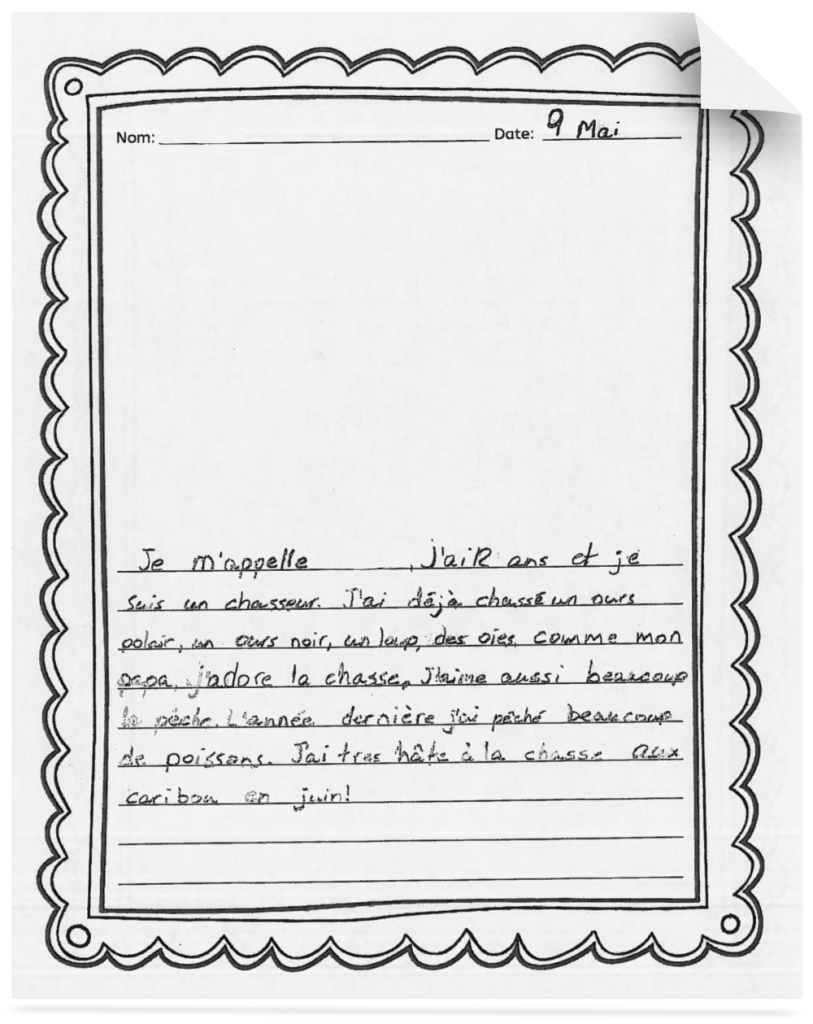 Nom: Date: 9 Mai
Je m'appelle , J'ai 12 ans et je
suis un chasseur. J'ai déjà chassé un ours
polair, un ours noir, un loup, des oies. comme mon
papa, j'adore la chasse, J'aime aussi beaucoup
la pêche. L'année dernière j'ai pêché beaucoup
de poissons. J'ai tres hâte à la chasse aux
caribou en juin!